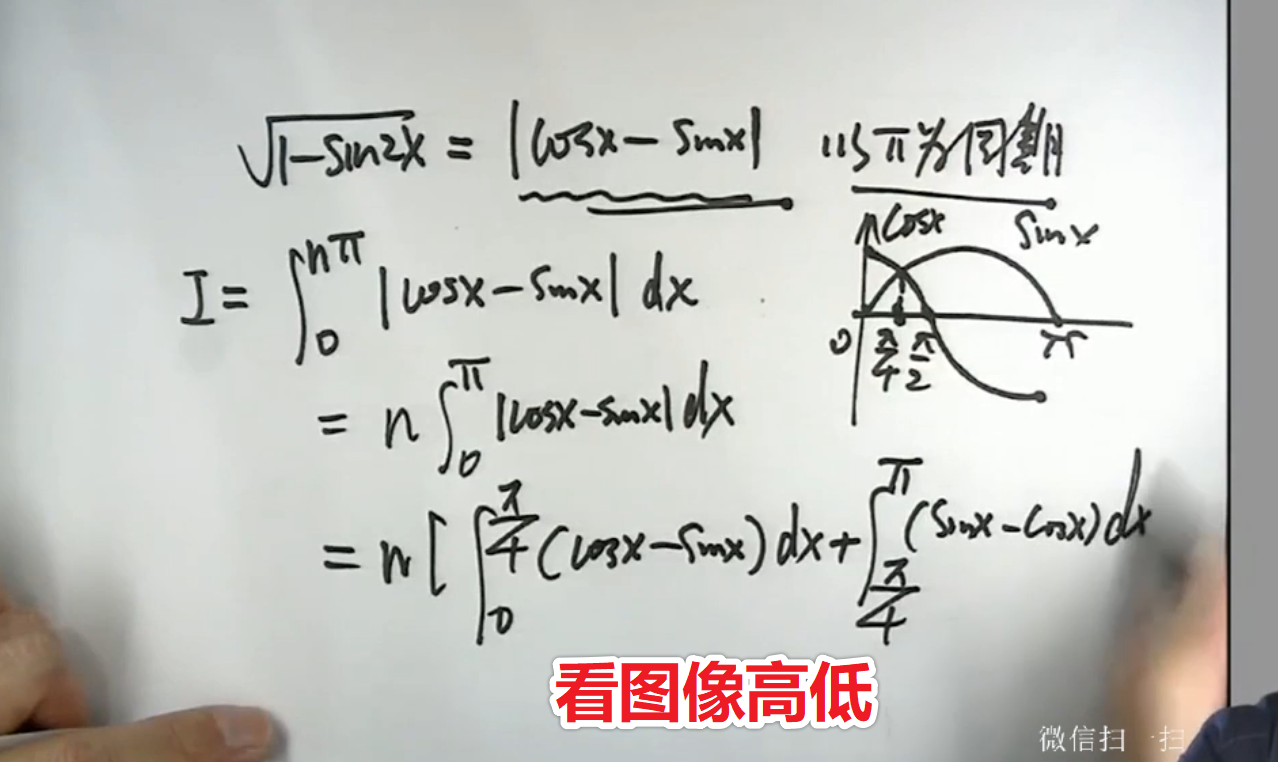 √(1-sin2x) = |cosx-sinx| 以π为周期
cosx sinx
I = ∫₀^{nπ} |cosx-sinx| dx
0 π/4 π/2 π
= n∫₀^π |cosx-sinx| dx
= n[∫₀^{π/4} (cosx-sinx) dx + ∫_{π/4}^π (sinx-cosx) dx
看图像高低
微信扫一扫